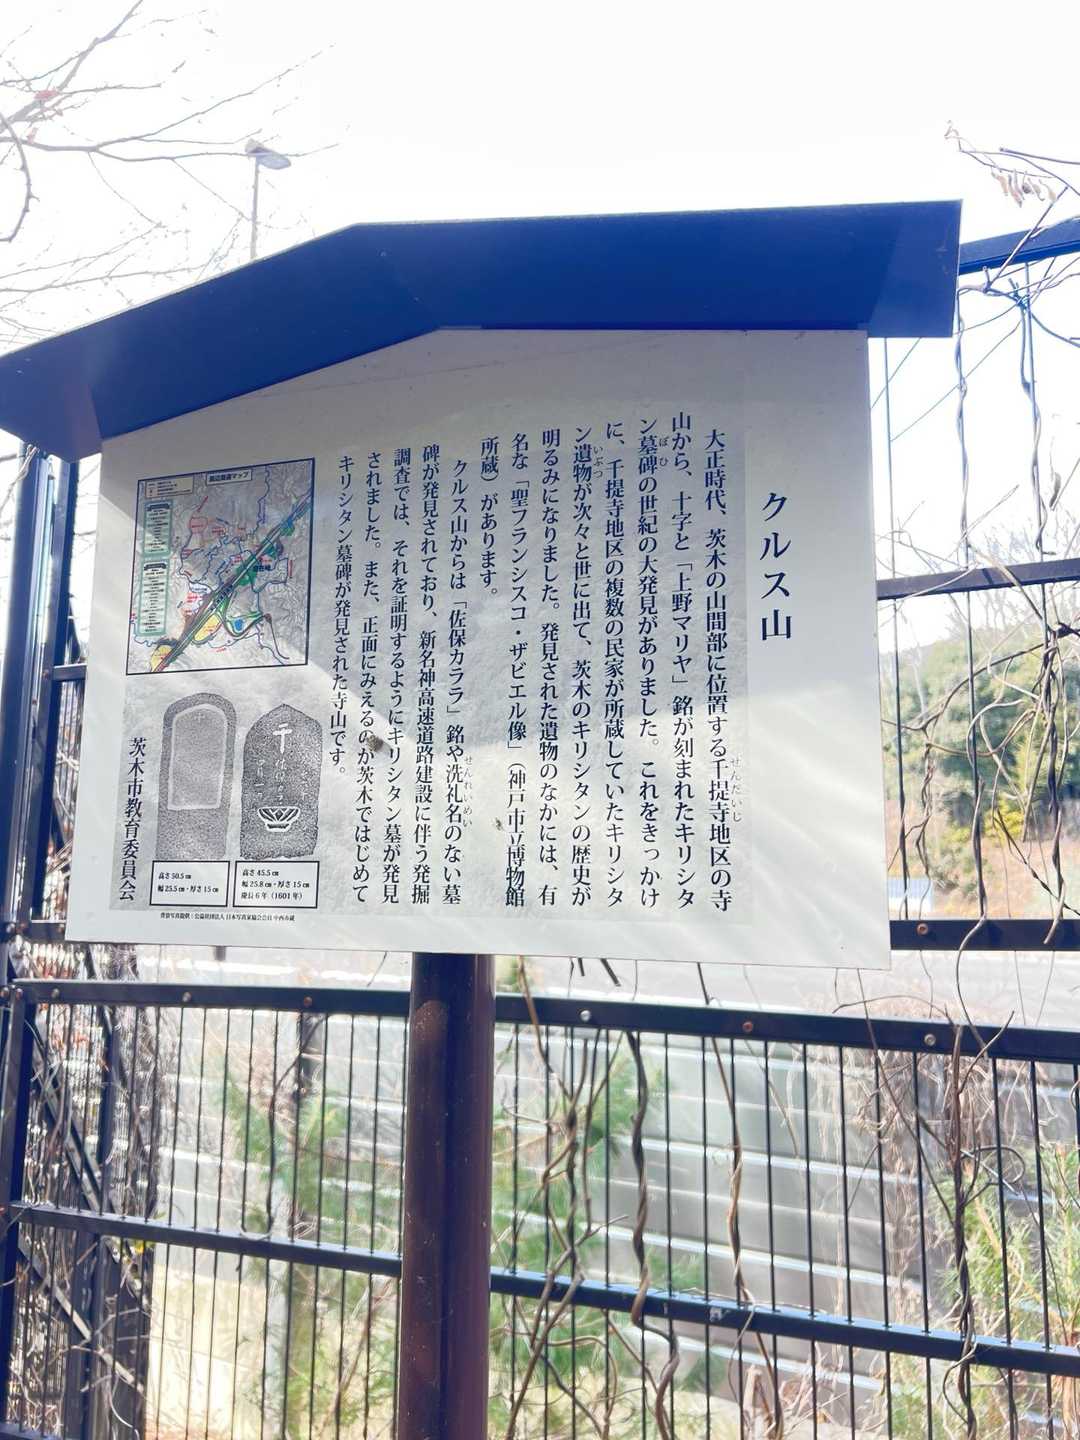 クルス山
大正時代、茨木の山間部に位置する千提寺地区の寺
せんだいじ
山から、十字と「上野マリヤ」銘が刻まれたキリシタ
ン墓碑の世紀の大発見がありました。これをきっかけ
ぼひ
に、千提寺地区の複数の民家が所蔵していたキリシタ
ン遺物が次々と世に出て、茨木のキリシタンの歴史が
いぶつ
明るみになりました。発見された遺物のなかには、有
名な「聖フランシスコ・ザビエル像」（神戸市立博物館
所蔵）があります。
クルス山からは「佐保カララ」銘や洗礼名のない墓
せんれいめい
碑が発見されており、新名神高速道路建設に伴う発掘
調査では、それを証明するようにキリシタン墓が発見
されました。また、正面にみえるのが茨木ではじめて
キリシタン墓碑が発見された寺山です。
周辺街道マップ
高さ45.5㎝
幅25.8㎝・厚さ15㎝
慶長6年（1601年）
高さ50.5㎝
幅25.5㎝・厚さ15㎝
茨木市教育委員会